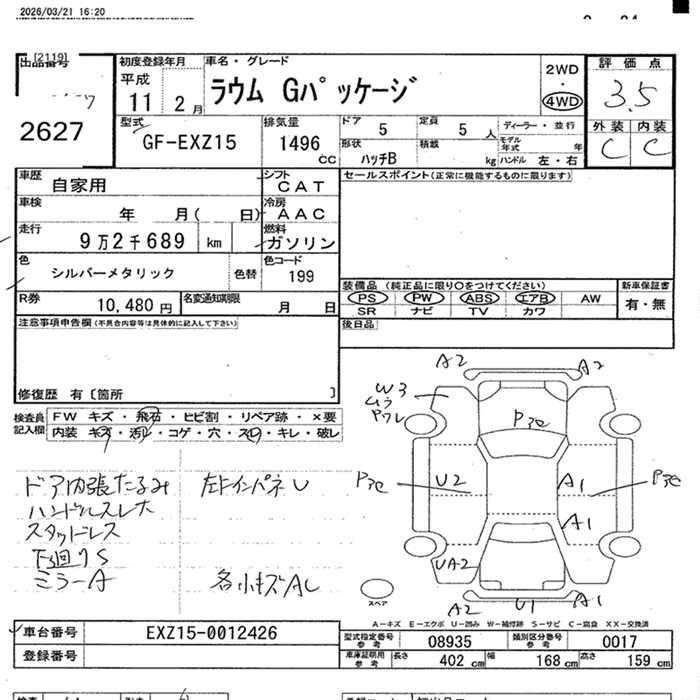 2026/03/21 16:20
[2119]
出品番号
2627
初度登録年月
平成
11 2月
車名・グレード
ラウム Gパッケージ
2WD
・
4WD
評価点
3.5
外装 内装
C C
型式
GF-EXZ15
排気量
1496
CC
ドア
5
定員
5 人
ディーラー・並行
モデル年式 年
形状
ハッチB
積載
kg
ハンドル 左・右
車歴
自家用
シフト
CAT
セールスポイント(正常に機能するものに限ります)
車検
年 月( 日)
冷房
AAC
走行
9万2千689 km
燃料
ガソリン
色
シルバーメタリック
色替
色コード
199
装備品 (純正品に限り○をつけてください)
PS PW ABS エアB AW
SR ナビ TV カワ
新車保証書
有・無
R券
10,480 円
名変通知期限
月 日
後日品
注意事項申告欄(不具合内容等は具体的に記入して下さい)
修復歴 有〔箇所 〕
検査員記入欄
FW キズ・飛石・ヒビ割・リペア跡・×要
内装 キズ・汚れ・コゲ・穴・スレ・キレ・破レ
ドア内張たるみ
ハンドルスレ大
スタッドレス
下回りS
ミラーA
左下インパネU
各小キズAU
A2
A2
W3
ムラ
U2
A1
A1
UA2
A2
U1
A1
スペア
A-キズ E-エクボ U-凹み W-補修跡 S-サビ C-腐食 XX-交換済
車台番号
EXZ15-0012426
登録番号
型式指定番号
参考
08935
類別区分番号
参考
0017
車庫証明用
参考
長さ
402 cm
幅
168 cm
高さ
159 cm